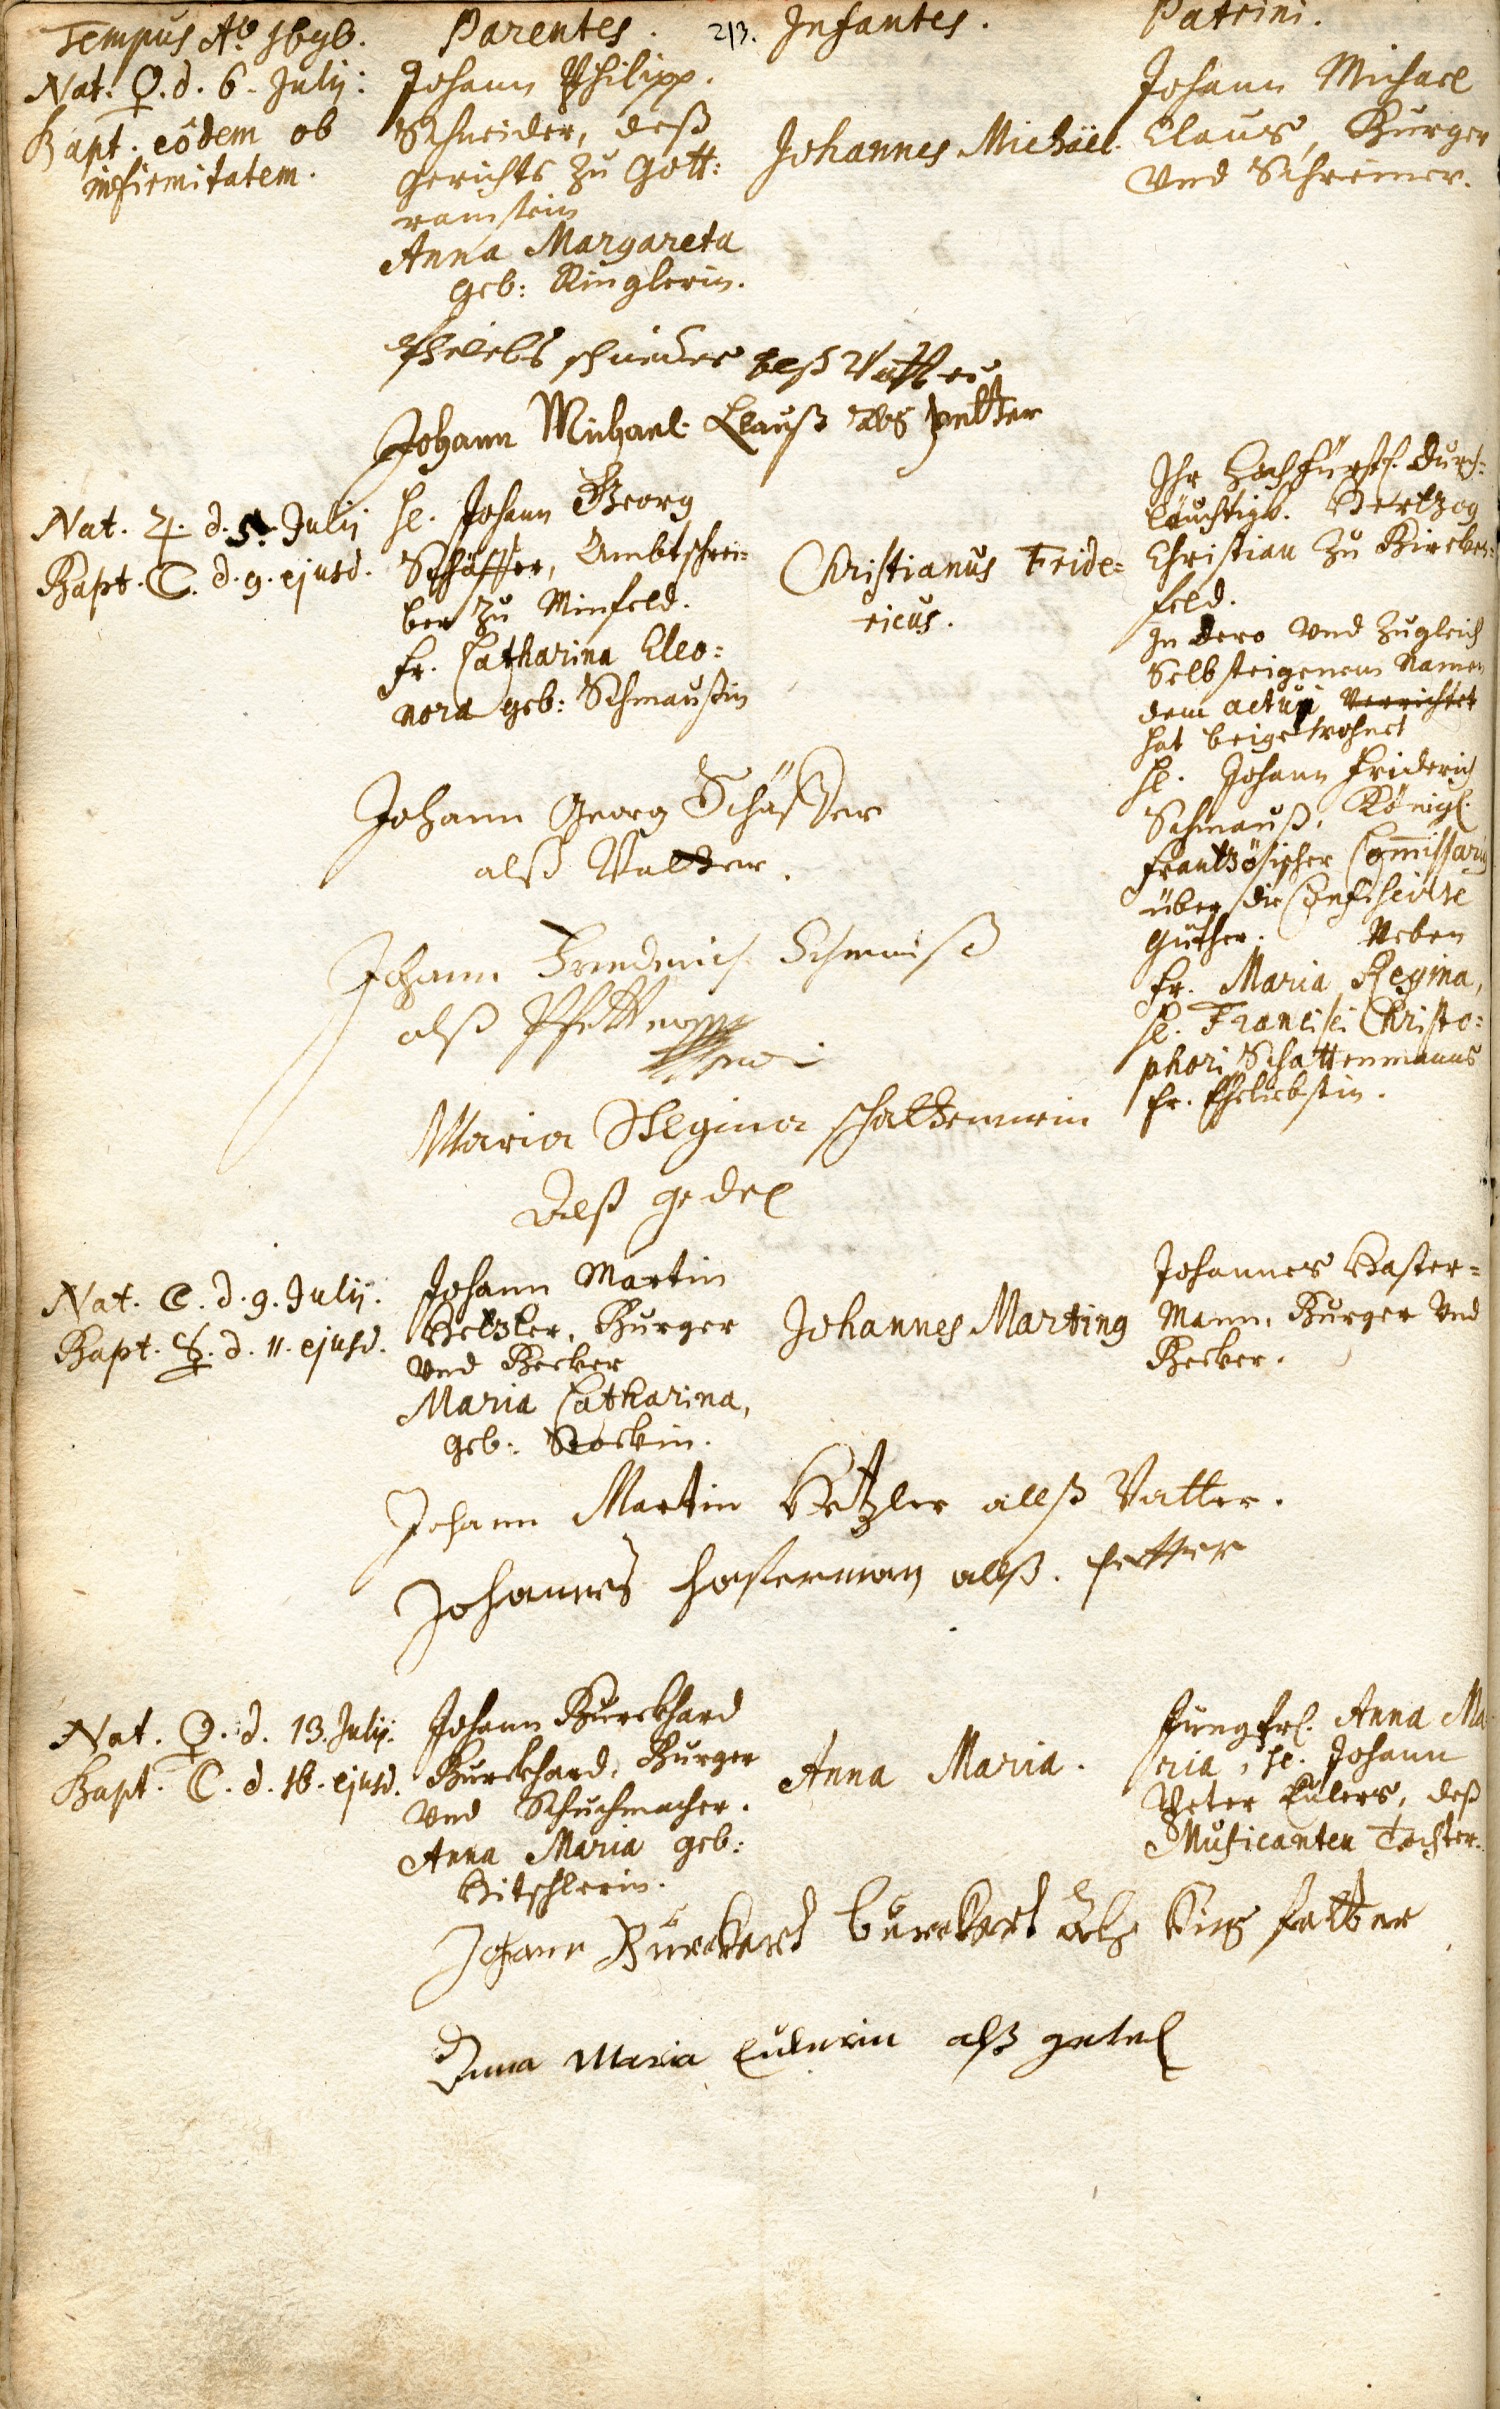 Tempus Aô 1696. Parentes. 213. Infantes. Patrini.
Nat. ♀. d. 6. Julij:
Bapt. eôdem ob
infirmitatem.
Johann Philipp.
Schneider, deß
Gerichts zu Gott:
ramstein
Anna Margareta
geb: Ringlerin.
Johannes Michäel.
Johann Michael
Claus, Burger
Vnd Schreiner.
schneider Vatter
Johann Michael Clauß als petter
Nat. ♃. d. 5. Julij
Bapt. ☾. d. 9. ejusd.
H. Johann Georg
Schäffer, Ambtschrei=
ber zu Minfeld.
Fr. Catharina Eleo=
nora geb: Schmaußin
Christianus Fride=
ricus.
Ihr Hochfürstl. Durch=
läuchtigk. Hertzog
Christian zu Bircken=
feld.
In dero Vnd zugleich
Selbsteigenem Namen
dem actui Verrichtet
hat beigewohnet
H. Johann Friderich
Schmauß, Königl.
Frantzösischer Commissarius
über die Confiscirte
Güther. Neben
Fr. Maria Regina,
H. Francisci Christo=
phori Schattenmanns
Fr. Eheliebstin.
Johann Georg Schäffer
alß Vatter.
Johann Friederich Schmauß
alß Pfetter
Maria Regina
Alß gedel
Nat. ☾. d. 9. Julij.
Bapt. ☿. d. 11. ejusd.
Johann Martin
Hetzler, Burger
Vnd Becker
Maria Catharina,
geb: Stockin.
Johannes Marting
Johannes Haster=
Mann, Burger Vnd
Becker.
Johann Martin Hetzler allß Vatter.
Johannes hasterman allß. petter
Nat. ♀. d. 13. Julij.
Bapt. ☾. d. 16. ejusd.
Johann Burckhard
Burckhard, Burger
Vnd Schuchmacher.
Anna Maria geb:
Hitschlerin.
Anna Maria.
Jungfrl. Anna Ma=
ria, H. Johann
Peter Eulers, deß
Musicanten Tochter.
Johann Burckhart burckhart alß fatter
Anna Maria Eulerin alß getel